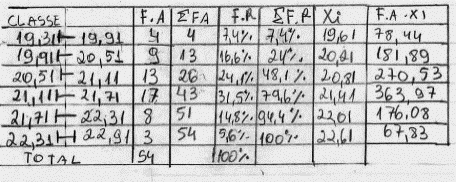 CLASSE F.A ΣFA F.R ΣF.R Xi F.A.XI
19,31⊢ 19,91 4 4 7,4% 7,4% 19,61 78,44
19,91⊢ 20,51 9 13 16,6% 24% 20,21 181,89
20,51⊢ 21,11 13 26 24,1% 48,1% 20,81 270,53
21,11⊢ 21,71 17 43 31,5% 79,6% 21,41 363,97
21,71⊢ 22,31 8 51 14,8% 94,4% 22,01 176,08
22,31⊢ 22,91 3 54 5,6% 100% 22,61 67,83
TOTAL 54 100%